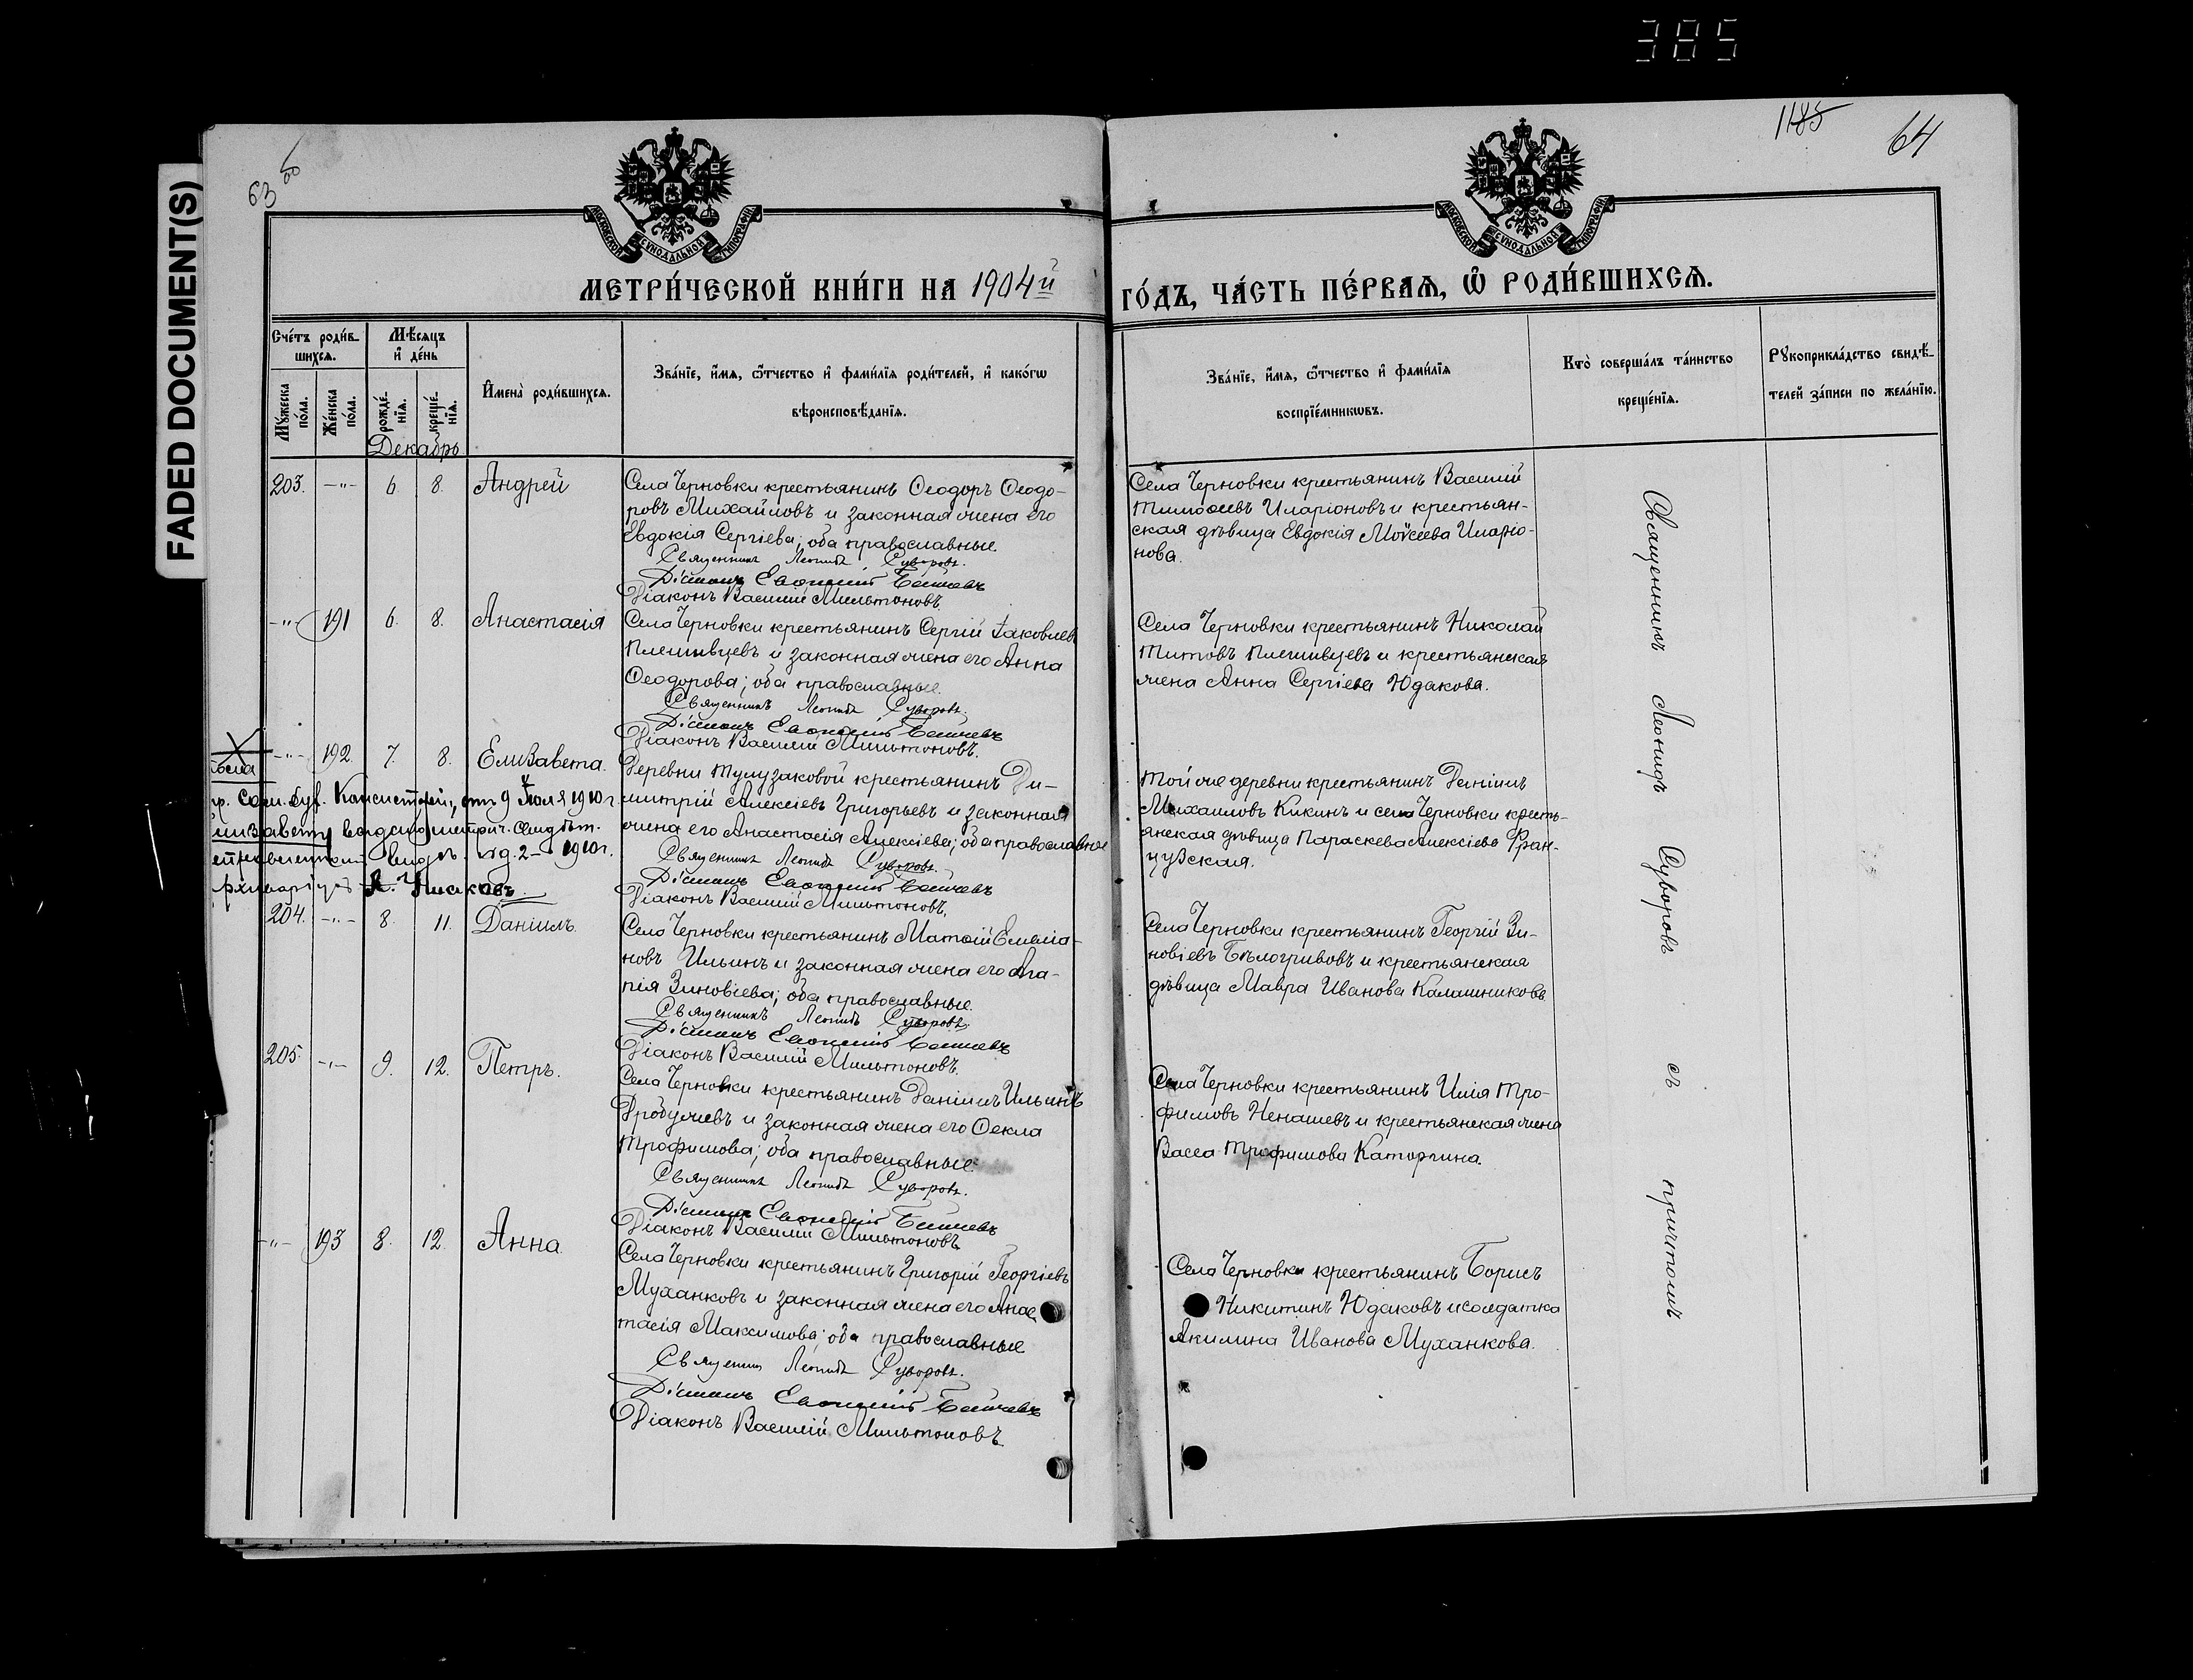 385
FADED DOCUMENT(S)
63 об
1185
64
МОСКОВСКОЙ СѴНОДАЛЬНОЙ ТИПОГРАФІИ
МОСКОВСКОЙ СѴНОДАЛЬНОЙ ТИПОГРАФІИ
МЕТРИ́ЧЕСКОЙ КНИ́ГИ НА 1904й
ГО́ДЪ, ЧА́СТЬ ПЕ́РВАѦ, Ѡ҆ РОДИ́ВШИХСѦ.
Сче́тъ роди́в-
шихсѧ.
Мѣ́сяцъ
и҆ де́нь
Мꙋ́жеска по́ла.
Же́нска по́ла.
рожде́-нїѧ.
креще́-нїѧ.
И҆мена̀ роди́вшихсѧ.
Зва́нїе, и҆́мѧ, ѻ҆́тчество и҆ фами́лїѧ роди́телей, и҆ како́гѡ
вѣроисповѣ́данїѧ.
Зва́нїе, и҆́мѧ, ѻ҆́тчество и҆ фами́лїѧ
воспрїе́мникѡвъ.
Кто̀ соверша́лъ та́инство
креще́нїѧ.
Рꙋкоприкла́дство свидѣ́-
телей за́писи по жела́нїю.
Декабрь
203. -"- 6. 8. Андрей
Села Черновки крестьянинъ Ѳеодоръ Ѳеодо-
ровъ Михайловъ и законная жена его
Евдокія Сергіева; оба православные.
Священникъ Леонидъ Суворовъ.
Діаконъ Василій Мильтоновъ
Села Черновки крестьянинъ Василій
Тимоѳеевъ Иларіоновъ и крестьян-
ская дѣвица Евдокія Моѵсеева Иларіо-
нова.
-"- 191 6. 8. Анастасія
Села Черновки крестьянинъ Сергій Іаковлевъ
Плешивцевъ и законная жена его Анна
Ѳеодорова; оба православные.
Священникъ Леонидъ Суворовъ.
Діаконъ Василій Мильтоновъ.
Села Черновки крестьянинъ Николай
Титовъ Плешивцевъ и крестьянская
жена Анна Сергіева Юдакова.
-"- 192. 7. 8. Елизавета.
Деревни Тулузаковой крестьянинъ Ди-
митрій Алексіевъ Григорьевъ и законная
жена его Анастасія Алексіева; оба православные
Священникъ Леонидъ Суворовъ.
Діаконъ Василій Мильтоновъ.
Той же деревни крестьянинъ Даніилъ
Михаиловъ Кикинъ и села Черновки кресть-
янская дѣвица Параскева Алексіева Фран-
цузская.
Консисторіи, отъ 9 Іюля 1910 г.
1910 г.
204. -"- 8. 11. Даніилъ.
Села Черновки крестьянинъ Матѳій Емеліа-
новъ Ильинъ и законная жена его Ага-
пія Зиновіева; оба православные.
Священникъ Леонидъ Суворовъ.
Діаконъ Василій Мильтоновъ.
Села Черновки крестьянинъ Георгій Зи-
новіевъ Бѣлогривовъ и крестьянская
дѣвица Мавра Иванова Калашникова
205. -"- 9. 12. Петръ.
Села Черновки крестьянинъ Даніилъ Ильинъ
Дробужевъ и законная жена его Ѳекла
Трофимова; оба православные.
Священникъ Леонидъ Суворовъ.
Діаконъ Василій Мильтоновъ
Села Черновки крестьянинъ Илія Тро-
фимовъ Ненашевъ и крестьянская жена
Васса Трофимова Каторгина.
-"- 193 8. 12. Анна.
Села Черновки крестьянинъ Григорій Георгіевъ
Муханковъ и законная жена его Анас
тасія Максимова; оба православные
Леонидъ Суворовъ.
Діаконъ Василій Мильтоновъ
Села Черновки крестьянинъ Борисъ
Никитинъ Юдаковъ и солдатка
Акилина Иванова Муханкова.
Священникъ Леонидъ Суворовъ съ причтомъ